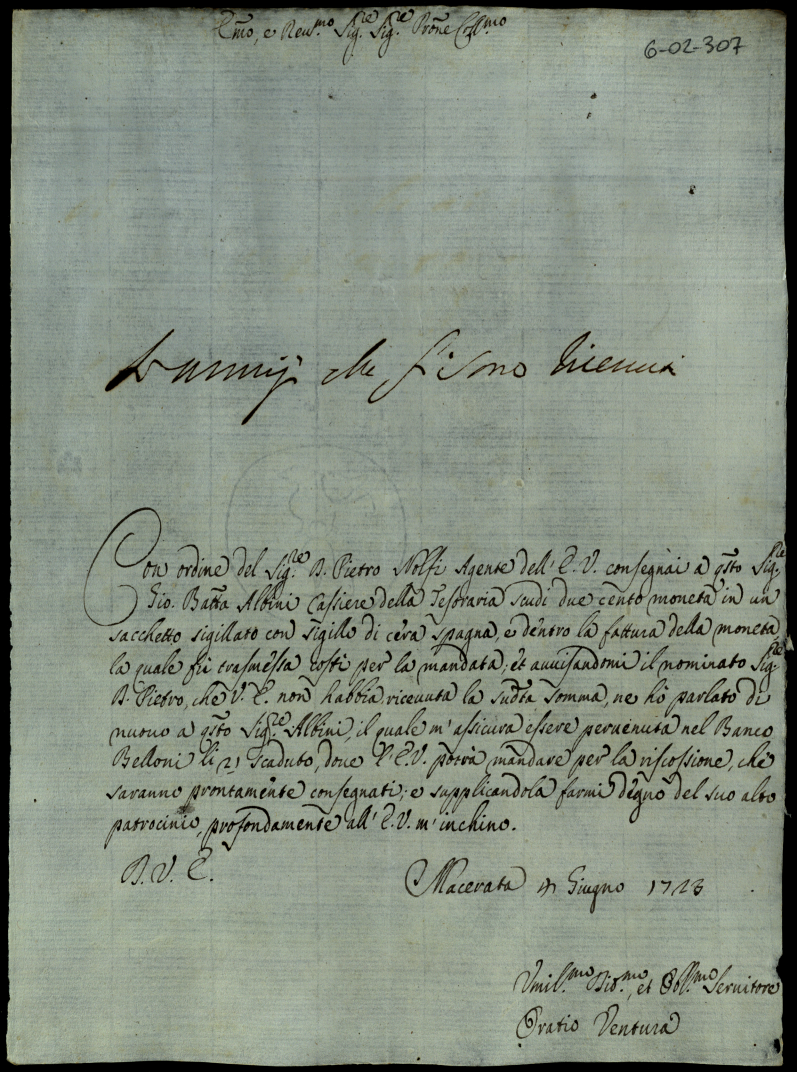 Emo, e Reu.mo Sig.re Sig.re Prone Coll.mo
6-02-307
che si sono
Con ordine del Sig.re D. Pietro Nolfi Agente dell' E.V. consegnai à qsto Sig.re
Gio. Batta Albini Cassiere della Tesoraria scudi due cento moneta in un
sacchetto sigillato con sigillo di cera spagna, e dentro la fattura della moneta
la quale fù trasmessa costì per la mandata; et auuisandomi il nominato Sig.re
D. Pietro, che V.E. non habbia riceuuta la sudta somma, ne hò parlato di
nuouo a qsto Sig.re Albini, il quale m' assicura essere peruenuta nel Banco
Belloni li 21 scaduto, doue l' E.V. potrà mandare per la riscossione, che
saranno prontamente consegnati; e supplicandola farmi degno del suo alto
patrocinio, profondamente all' E.V. m' inchino.
D. V. E.
Macerata 4 Giugno 1723
Vmil.mo Diu.mo, et Obl.mo Seruitore
Oratio Ventura